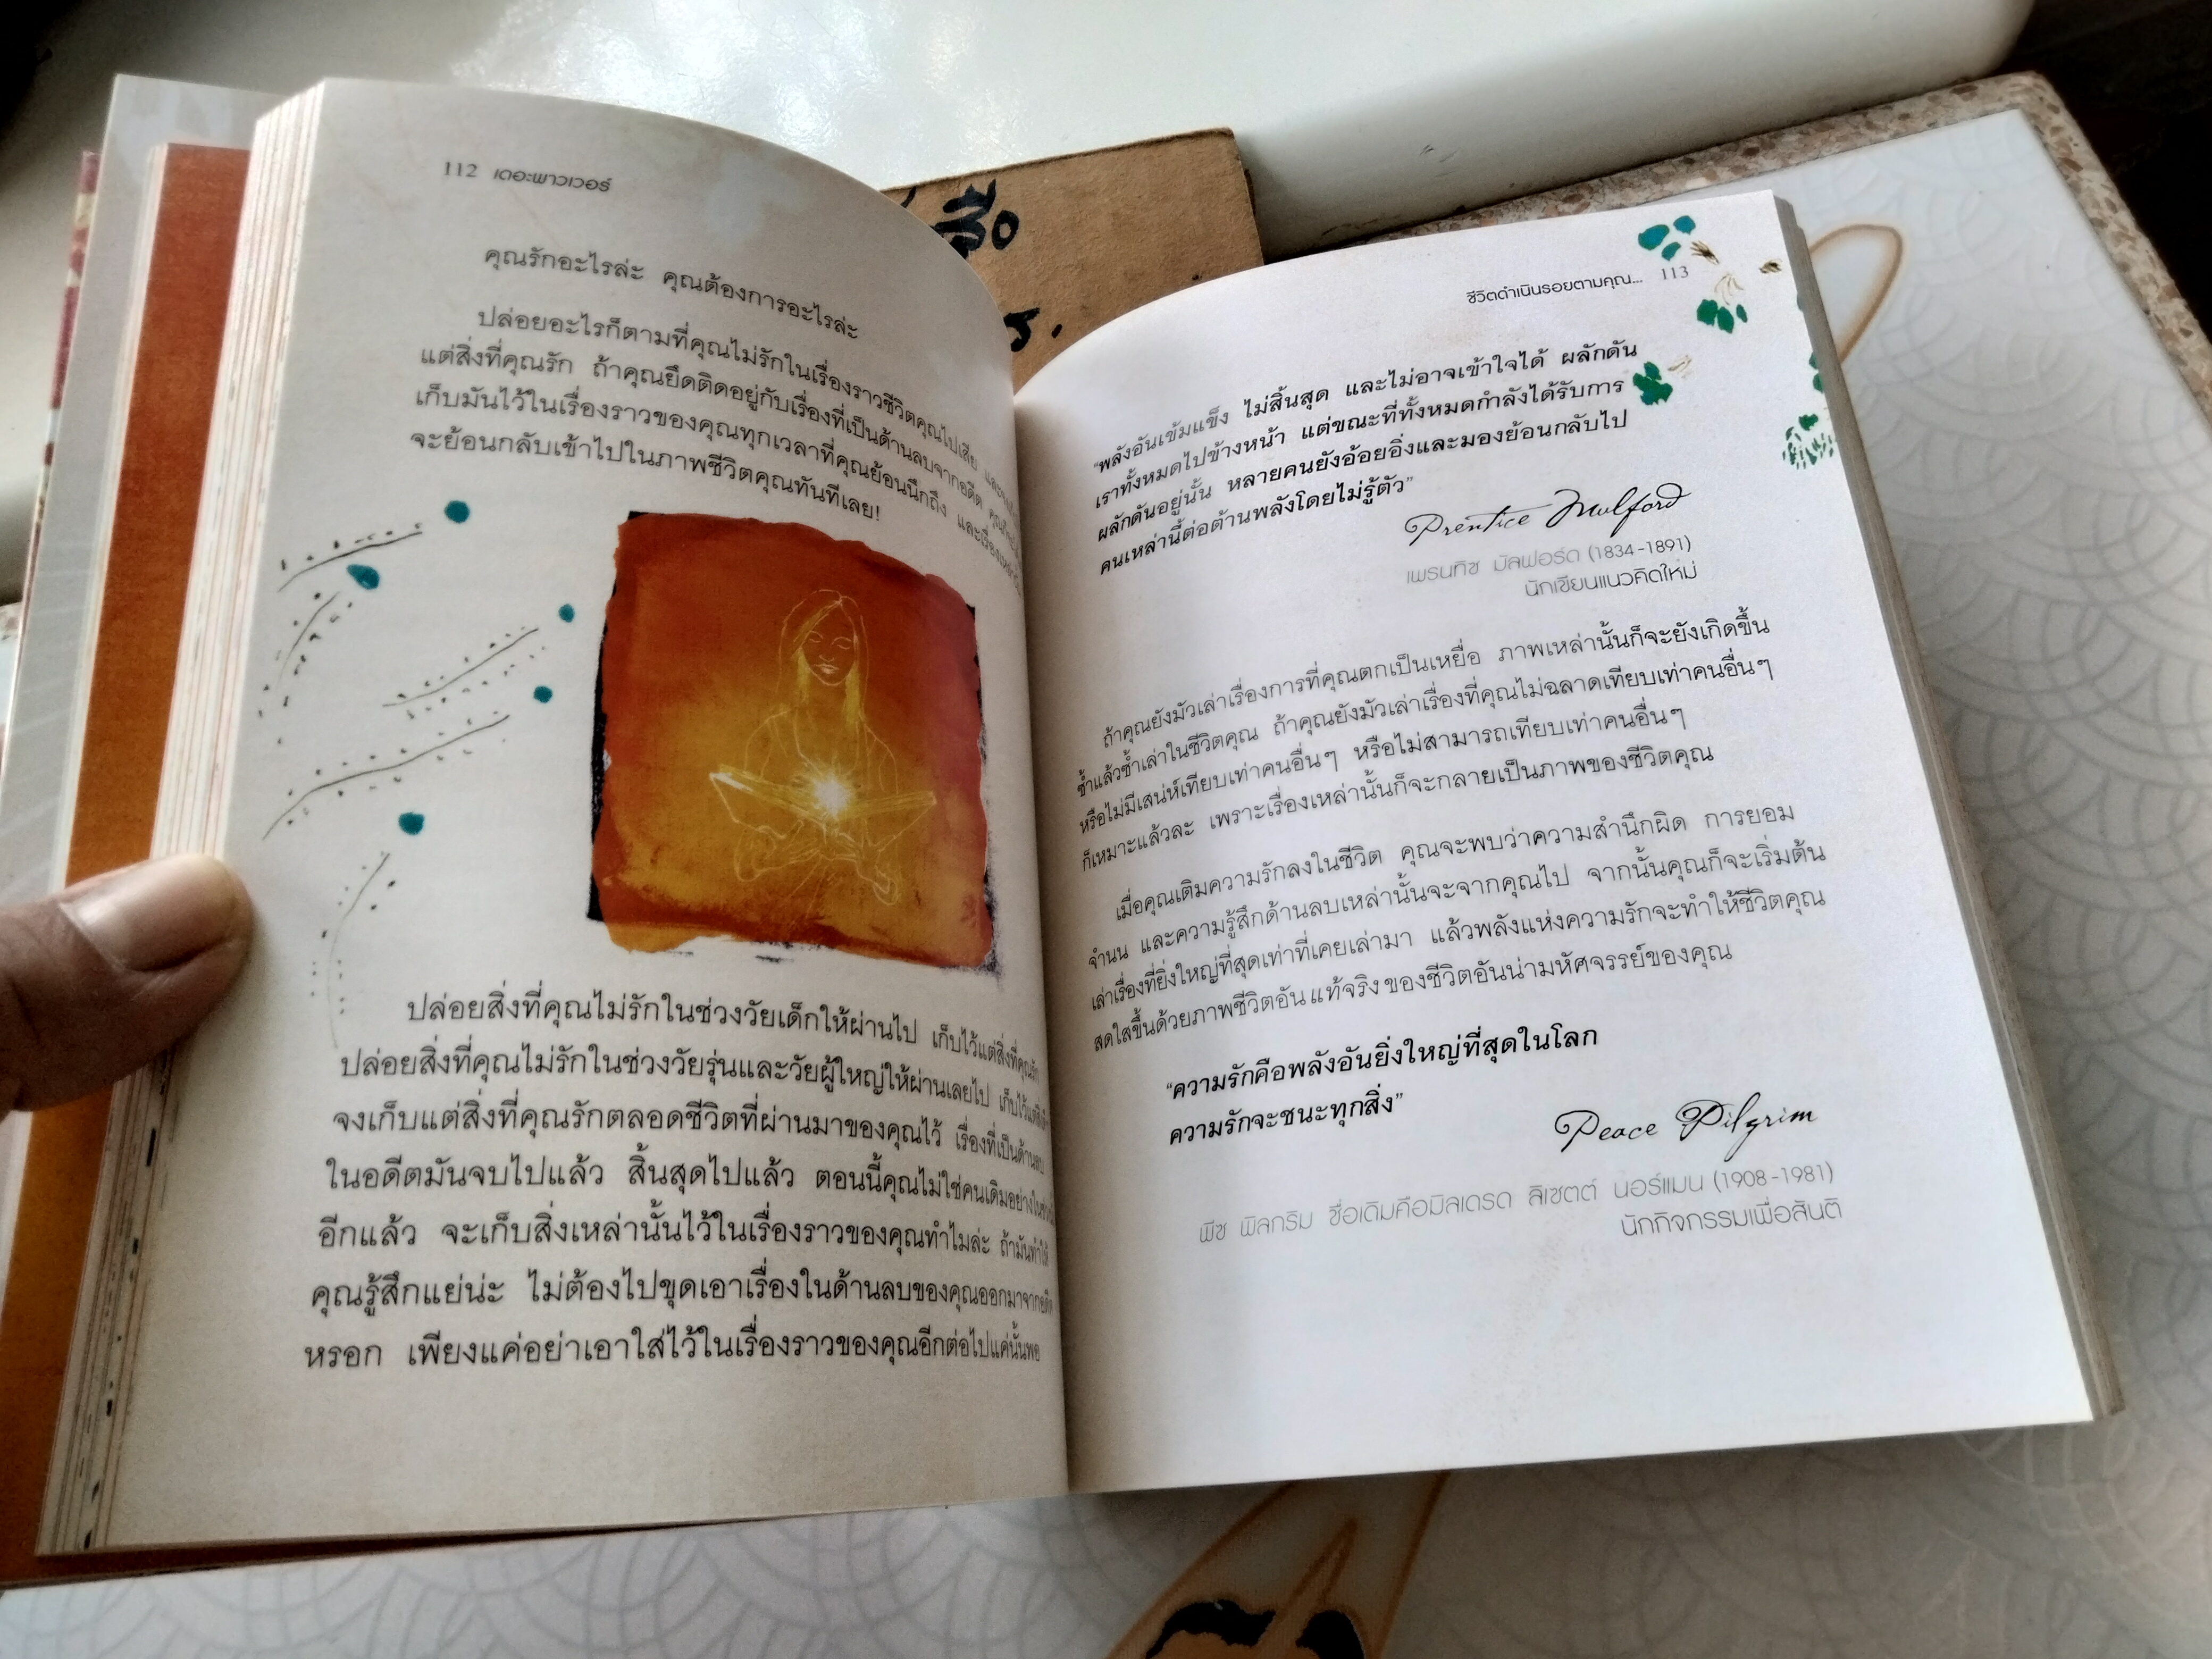 112 เดอะพาวเวอร์
คุณรักอะไรล่ะ คุณต้องการอะไรล่ะ
ปล่อยอะไรก็ตามที่คุณไม่รักในเรื่องราวชีวิตคุณไปเสีย
แต่สิ่งที่คุณรัก ถ้าคุณยึดติดอยู่กับเรื่องที่เป็นด้านลบจากอดีต
เก็บมันไว้ในเรื่องราวของคุณทุกเวลาที่คุณย้อนนึกถึง
จะย้อนกลับเข้าไปในภาพชีวิตคุณทันทีเลย!
ปล่อยสิ่งที่คุณไม่รักในช่วงวัยเด็กให้ผ่านไป เก็บไว้แต่สิ่งที่คุณรัก
ปล่อยสิ่งที่คุณไม่รักในช่วงวัยรุ่นและวัยผู้ใหญ่ให้ผ่านเลยไป
จงเก็บแต่สิ่งที่คุณรักตลอดชีวิตที่ผ่านมาของคุณไว้ เรื่องที่เป็นด้านลบ
ในอดีตมันจบไปแล้ว สิ้นสุดไปแล้ว ตอนนี้คุณไม่ใช่คนเดิมอย่างใน
อีกแล้ว จะเก็บสิ่งเหล่านั้นไว้ในเรื่องราวของคุณทำไมล่ะ ถ้ามันทำให้
คุณรู้สึกแย่น่ะ ไม่ต้องไปขุดเอาเรื่องในด้านลบของคุณออกมาจากอดีต
หรอก เพียงแค่อย่าเอาใส่ไว้ในเรื่องราวของคุณอีกต่อไปแค่นั้นพอ
ชีวิตดำเนินรอยตามคุณ... 113
“พลังอันเข้มแข็ง ไม่สิ้นสุด และไม่อาจเข้าใจได้ ผลักดัน
เราทั้งหมดไปข้างหน้า แต่ขณะที่ทั้งหมดกำลังได้รับการ
ผลักดันอยู่นั้น หลายคนยังอ้อยอิ่งและมองย้อนกลับไป
คนเหล่านี้ต่อต้านพลังโดยไม่รู้ตัว”
Prentice Mulford
เพรนทิซ มัลฟอร์ด (1834-1891)
นักเขียนแนวคิดใหม่
ถ้าคุณยังมัวเล่าเรื่องการที่คุณตกเป็นเหยื่อ ภาพเหล่านั้นก็จะยังเกิดขึ้น
ซ้ำแล้วซ้ำเล่าในชีวิตคุณ ถ้าคุณยังมัวเล่าเรื่องที่คุณไม่ฉลาดเทียบเท่าคนอื่นๆ
หรือไม่มีเสน่ห์เทียบเท่าคนอื่นๆ หรือไม่สามารถเทียบเท่าคนอื่นๆ
ก็เหมาะแล้วละ เพราะเรื่องเหล่านั้นก็จะกลายเป็นภาพของชีวิตคุณ
เมื่อคุณเติมความรักลงในชีวิต คุณจะพบว่าความสำนึกผิด การยอม
จำนน และความรู้สึกด้านลบเหล่านั้นจะจากคุณไป จากนั้นคุณก็จะเริ่มต้น
เล่าเรื่องที่ยิ่งใหญ่ที่สุดเท่าที่เคยเล่ามา แล้วพลังแห่งความรักจะทำให้ชีวิตคุณ
สดใสขึ้นด้วยภาพชีวิตอันแท้จริงของชีวิตอันน่ามหัศจรรย์ของคุณ
“ความรักคือพลังอันยิ่งใหญ่ที่สุดในโลก
ความรักจะชนะทุกสิ่ง”
Peace Pilgrim
พีซ พิลกริม ชื่อเดิมคือมิลเดรด ลิเซตต์ นอร์แมน (1908-1981)
นักกิจกรรมเพื่อสันติ